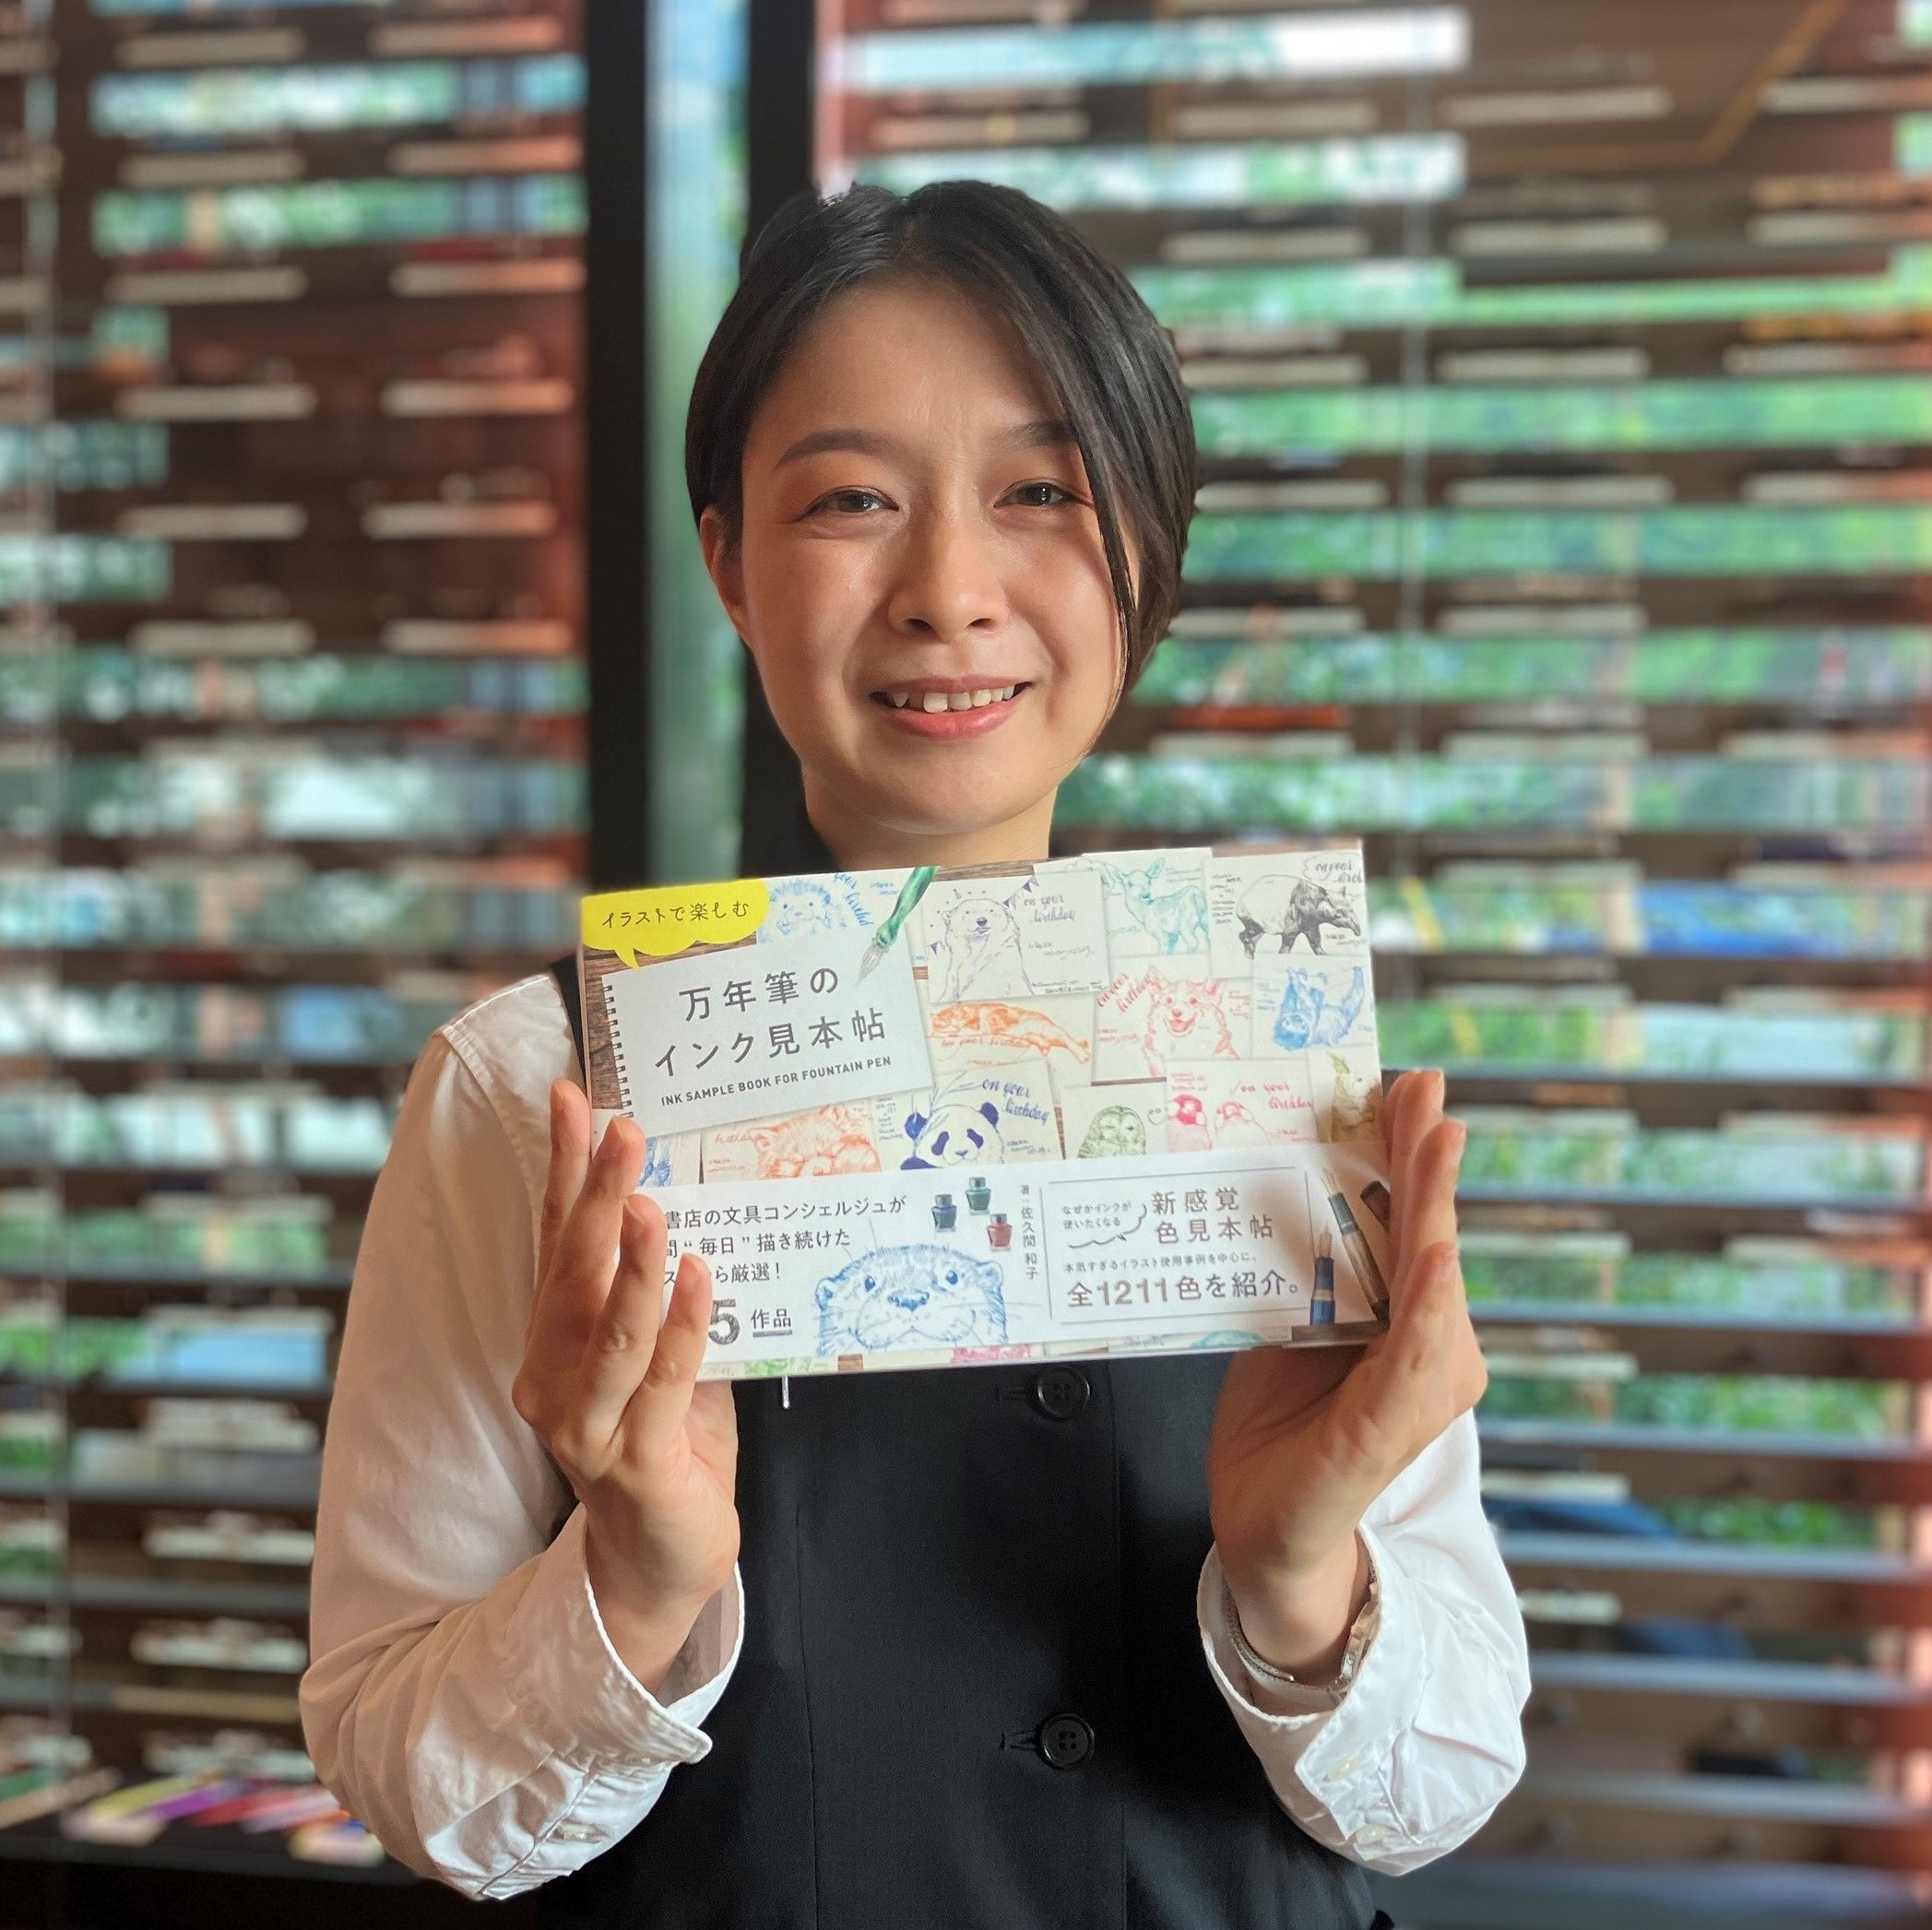 イラストで楽しむ
万年筆の
インク見本帖
INK SAMPLE BOOK FOR FOUNTAIN PEN
on your
birthday
on your
birthday
on your
birthday
書店の文具コンシェルジュが
間“毎日”描き続けた
ら厳選!
5作品
著:佐久間 和子
なぜかインクが
使いたくなる
新感覚
色見本帖
本気すぎるイラスト使用事例を中心に、
全1211色を紹介。